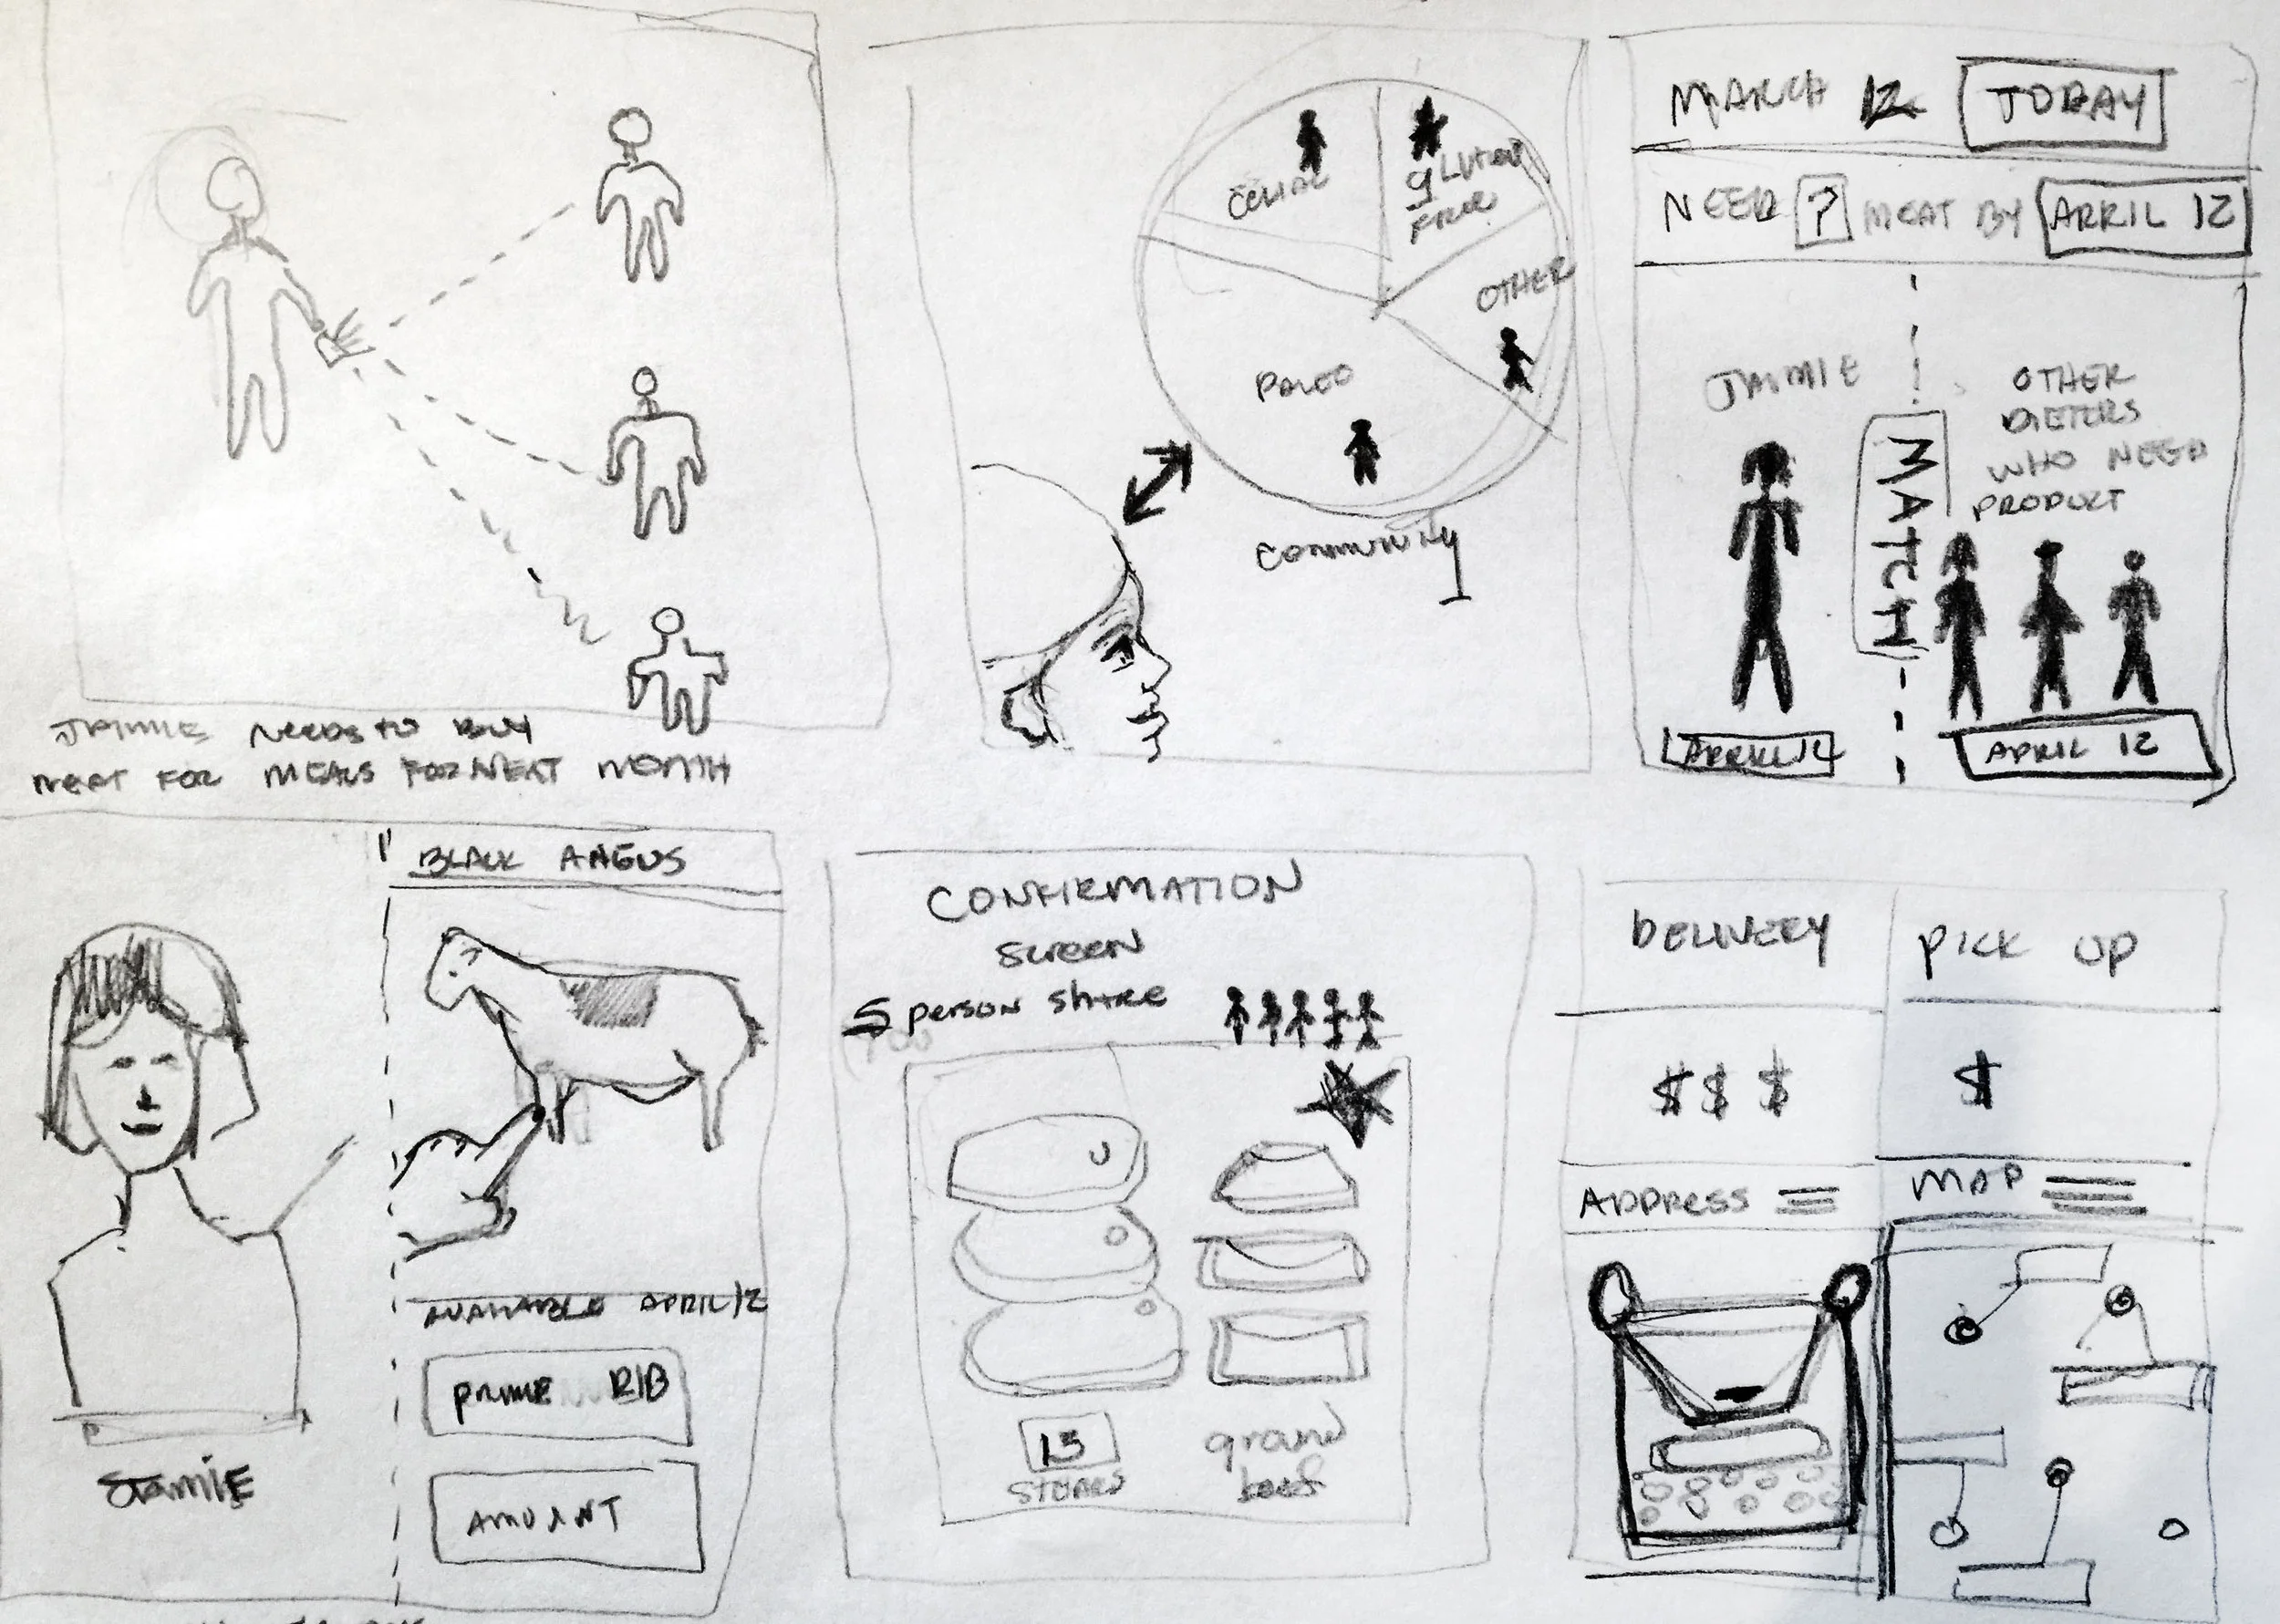 JAMIE NEEDS TO BUY
MEAT FOR MEALS FOR NEXT MONTH
CELIAC
gLUTEN
FREE
OTHER
PALEO
COMMUNITY
MARCH 12 TODAY
NEED ? MEAT BY APRIL 12
JAMIE
OTHER
DIETERS
WHO NEED
PRODUCT
MATCH
APRIL 12
APRIL 12
BLACK ANGUS
AVAILABLE APRIL 12
PRIME RIB
AMOUNT
JAMIE
CONFIRMATION
SCREEN
5 PERSON SHARE
15
STEAKS
ground
beef
DELIVERY
PICK UP
$ $ $
$
ADDRESS
MAP